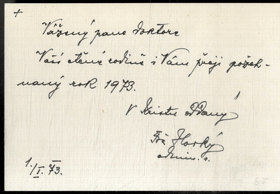 +
Vážený pane doktore
Vaší ctěné rodině i Vám přeji požeh-
naný rok 1973.
V Kristu oddaný
Horký
1./I. 73.